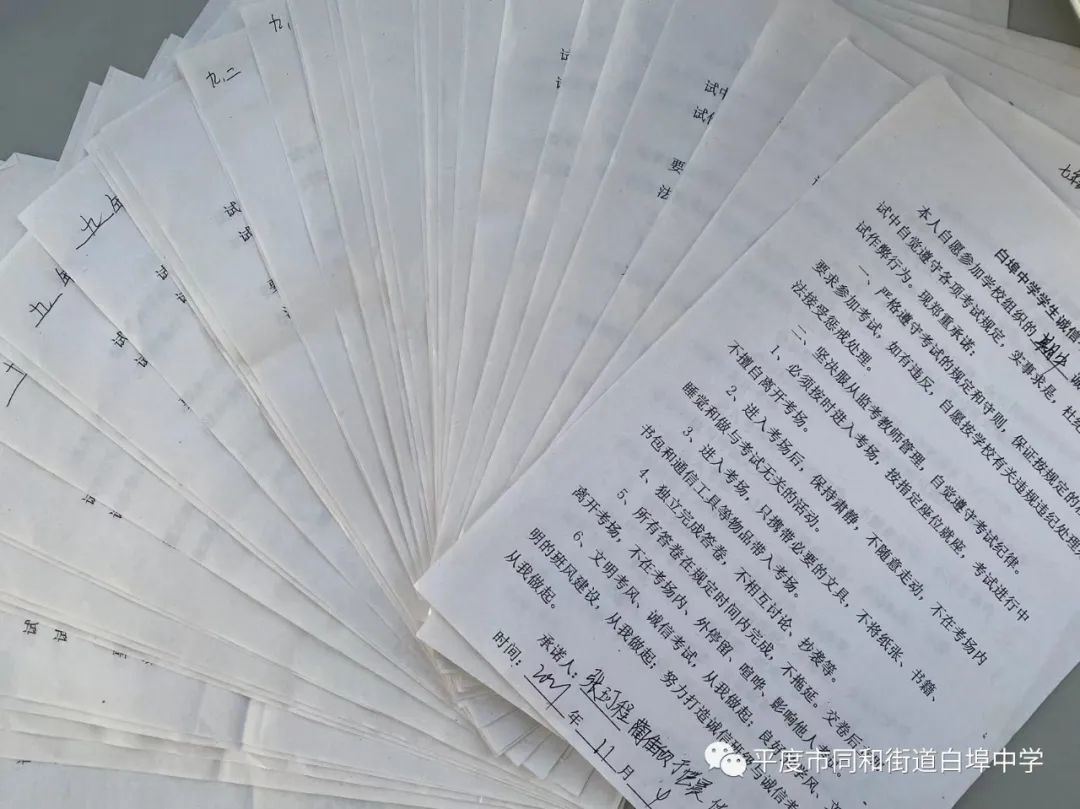 白埠中学学生诚信
本人自愿参加学校组织的 期中 诚
试中自觉遵守各项考试规定,实事求是,杜绝
试作弊行为。现郑重承诺:
一、严格遵守考试的规定和守则,保证按规定的
要求参加考试,如有违反,自愿按学校有关违规违纪处理
法接受惩戒处理。
二、坚决服从监考教师管理,自觉遵守考试纪律。
1、必须按时进入考场,按指定座位就座,考试进行中
不擅自离开考场。
2、进入考场后,保持肃静,不随意走动,不在考场内
睡觉和做与考试无关的活动。
3、进入考场,只携带必要的文具,不将纸张、书籍、
书包和通信工具等物品带入考场。
4、独立完成答卷,不相互讨论、抄袭等。
5、所有答卷在规定时间内完成,不拖延。交卷后
离开考场,不在考场内、外停留、喧哗、影响他人
6、文明考风、诚信考试,从我做起;良好学风、文
明的班风建设,从我做起;努力打造诚信 与诚信考
从我做起。
承诺人:
时间: 年 11 月
九.二
九.
九.一
试
试
试中
试作
要
法
平度市同和街道白埠中学